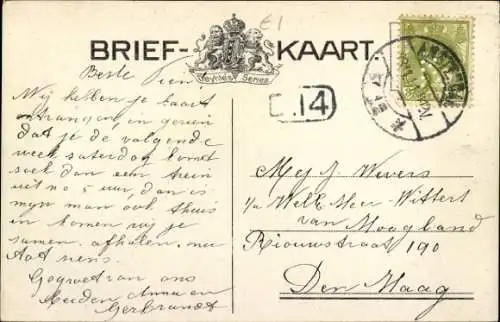 £1
BRIEF- KAART
Weynlest Series
Beste Pien
C.14
AMSTERDAM
Wij hebben je kaart
ontvangen en gezien
dat je de volgende
week zaterdag komt
zoek dan een trein
uit na 5 uur, dan is
mijn man ook thuis
en komen wij je
samen afhalen, nu
dat nens.
Gegroet van ons
beiden Anna en
Gerbrandt
Mej J. Wevers
Wittert
van Hoogland
Riouwstraat 190
Den Haag